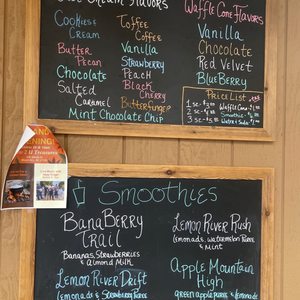 Ice Cream Flavors
Cookiese
Cream
Butter
Pecan
Chocolate
Salted
Caramel
Mint Chocolate Chip
Toffee
Coffee
Vanilla
Strawberry
Peach
Black
Cherry
Butterfinger
Waffle Cone Flavors
Vanilla
Chocolate
Red Velvet
BlueBerry
Price List
1 sc.
2 sc.
3 sc.
Smoothies
BanaBerry
Trail
Bananas, Strawberries
& Almond Milk
Lemon River Drift
lemonade & Strawberry Puree
Lemon River Rush
lemonade, watermelon Puree
& Mint
Apple Mountain
High
green apple puree &